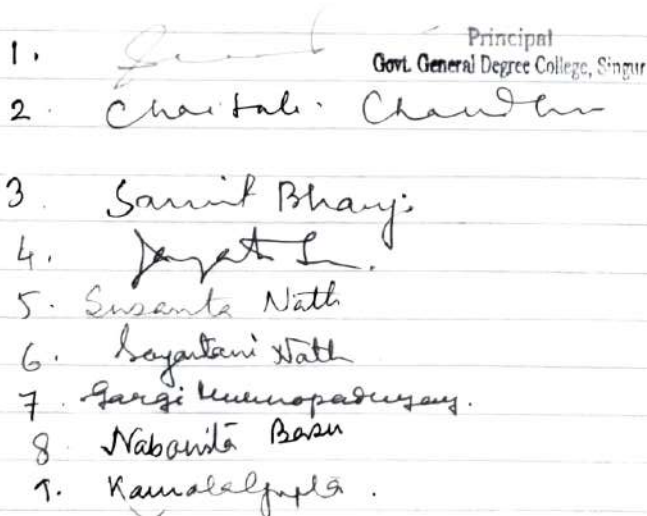 1. Principal
Govt. General Degree College, Singur
2. Chaitali
3. Bhanja
4.
5. Susanta Nath
6. Sayantani Nath
7. Gargi Mukhopadhyay.
8 Nabanita Basu
9. Kamalal Gupta.